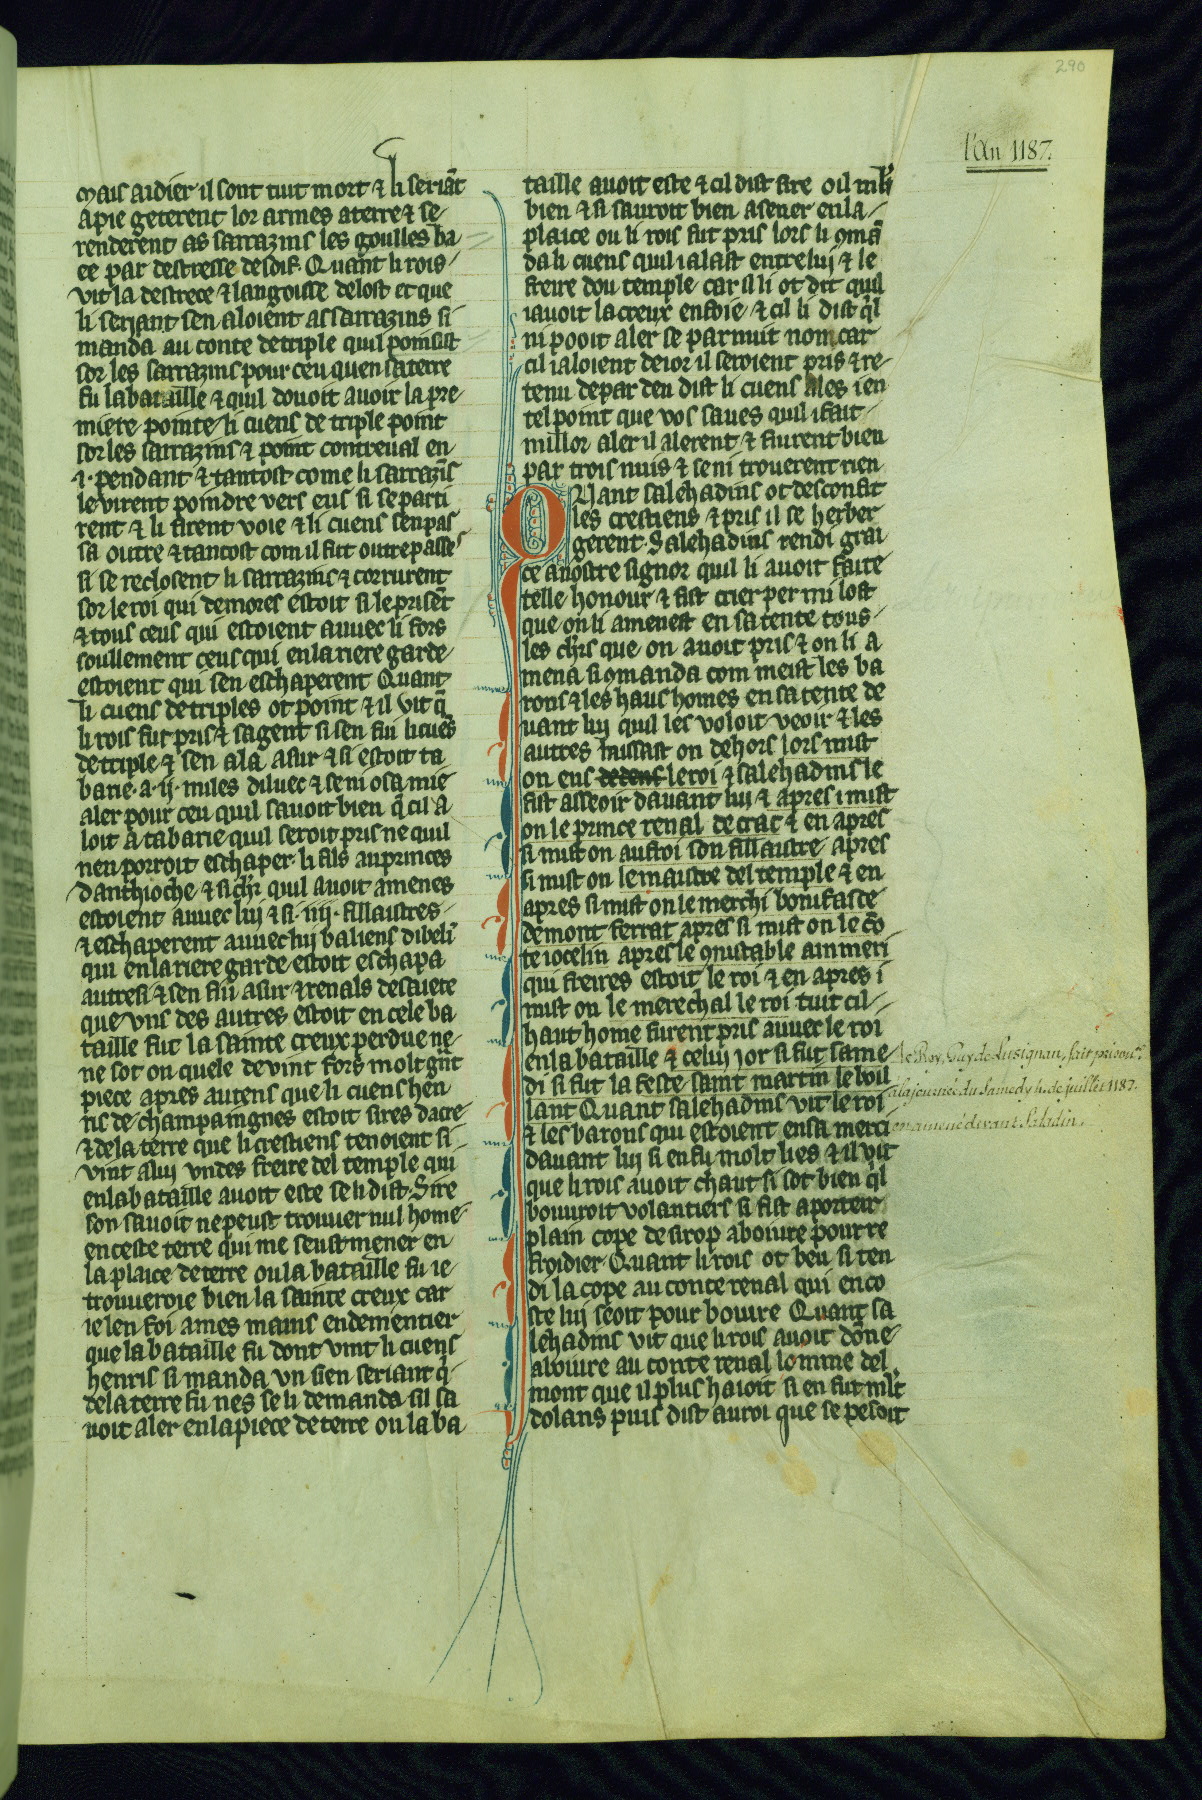 290
l'An 1187.
mais aidier il sont tuit mort & li seriãt
a pie geterent lor armes a terre & se
renderent as sarrazins les goulles ba
ee par destresse de soif. Quant li rois
vit la destrece & langoisse de lost et que
li seriant sen aloient as sarrazins si
manda au conte de triple quil poinsist
sor les sarrazins pour ceu quen sa terre
fu la bataille & quil douoit auoir la pre
miere pointe li cuens de triple point
sor les sarrazins & point contreual en
.i. pendant & tantost come li sarrazĩs
le virent poindre vers eus si se parti
rent & li firent voie & li cuens sen pas
sa outre & tantost com il fut outre passes
si se reclosent li sarrazins & corrurent
sor le roi qui demores estoit si le prisẽt
& tous ceus qui estoient auuec li fors
soullement ceus qui en la riere garde
estoient qui sen eschaperent Quant
li cuens de triples ot point & il vit q̃
li rois fut pris & sa gent si sen fui li cuẽs
de triple & sen ala a sur & si estoit ta
barie a .ij. miles diluec & se ni osa mie
aler pour ceu quil sauoit bien q̃ cil a
loit a tabarie quil seroit pris ne quil
nen porroit eschaper li fils au princes
danthioche & si chr̃ quil auoit amenes
estoient auuec lui & si .iiij. fillaistres
& eschaperent auuec luy baliens dibelĩ
qui en la riere garde estoit eschapa
autresi & sen fui a sur & renals de saiete
que vns des autres estoit en cele ba
taille fut la sainte creux perdue ne
ne sot on quele deuint fors molt grñt
piece apres autens que li cuens hen
ris de champaingnes estoit sires dacre
& de la terre que li crestiens tenoient si
vint a luy vn des freire del temple qui
en la bataille auoit este se li dist. Sire
son sauoit ne peust trouuer nul home
en ceste terre qui me seust mener en
la plaice de terre ou la bataille fu ie
trouueroie bien la sainte creux car
ie len foi a mes mains endementier
que la bataille fu dont vint li cuens
henris si manda vn sien seriant q̃
de la terre fu nes se li demanda sil sa
uoit aler en la piece de terre ou la ba
taille auoit este & cil dist sire oil mlt̃
bien & si sauroit bien asener en la
plaice ou li rois fut pris lors li 9mã
da li cuens quil i alast entre lui & le
freire dou temple car il li ot dit quil
i auoit la creux enfoie & cil li dist q̃l
ni pooit aler se par nuit nom car
cil i aloient de ior il seroient pris & re
tenu de par deu dist li cuens Ales i en
tel point que vos saues quil i fait
millor aler il alerent & furent bien
par trois nuis & se ni trouerent rien
QUant salehadins ot desconfit
les crestiens & pris il se herber
gerent. Salehadins rendi grai
ce a nostre signor quil li auoit faite
telle honour & fist crier per mi lost
que on li amenest en sa tente tous
les chr̃s que on auoit pris & on li a
mena si 9manda com meist les ba
rons & les haus homes en sa tente de
uant luy quil les voloit veoir & les
autres laissast on dehors lors mist
on ens dedens le roi & salehadins le
fist asseoir dauant luy & apres i mist
on le prince renal de crac & en apres
si mist on aufroi son fillastre apres
si mist on le maistre del temple & en
apres si mist on le merchi bonifasce
de mont ferrat apres si mist on le cõ
te iocelin apres le 9nistable ammeri
qui freires estoit le roi & en apres i
mist on le merechal le roi tuit cil
haut home furent pris auuec le roi
en la bataille & celuy ior si fut same
di si fut la feste saint martin le boil
lant Quant salehadins vit le roi
& les barons qui estoient en sa merci
dauant luy si en fu molt lies & il vit
que li rois auoit chaut si sot bien q̃l
bouuroit volantiers si fist aporter
plain cope de sirop a bouire pour re
froidier. Quant li rois ot beu si ten
di la cope au conte renal qui enco
ste luy seoit pour bouire Quant sa
lehadins vit que li rois auoit dõne
a bouire au conte renal lomme del
mont que il plus haioit si en fut mlt̃
dolans puis dist au roi que se pesoit
le Roy Guy de Lusignan, fait prisonr.
a la journée du Samedy 4. de juillet 1187.
en amené devant Saladin.